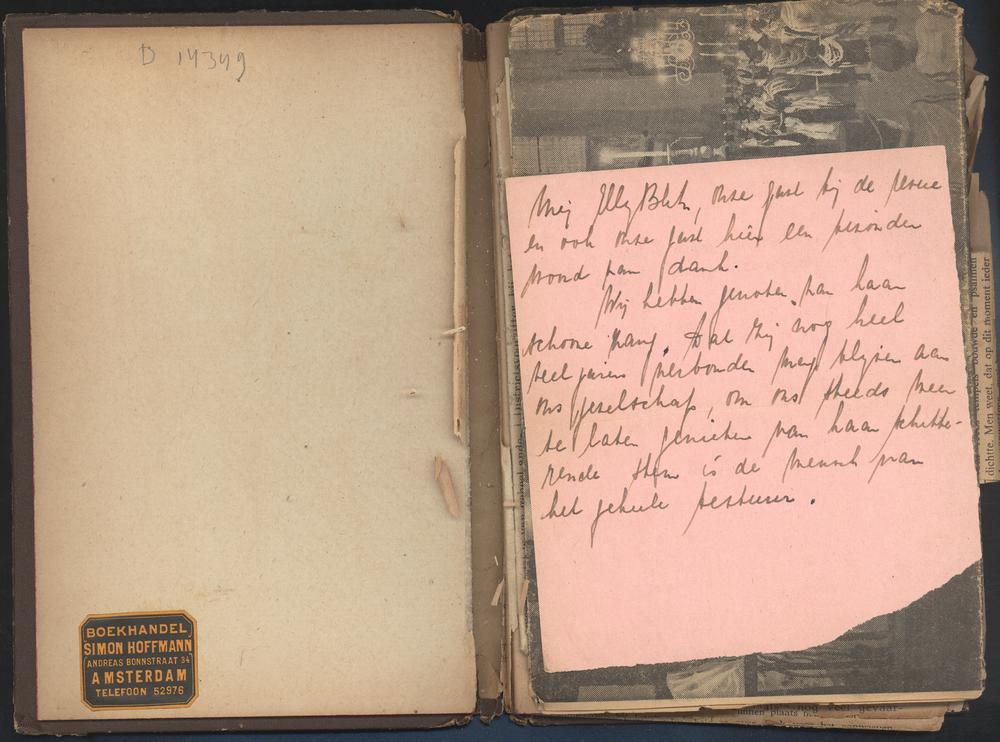 D 14349
BOEKHANDEL
SIMON HOFFMANN
ANDREAS BONNSTRAAT 34
AMSTERDAM
TELEFOON 52976
Mej Elly Bloh, onze gast bij de revue
en ook onze gast hier een bizonder
woord van dank.
Wij hebben genoten van haar
schoone zang. Dat zij nog heel
veel jaren verbonden mag blijven aan
ons gezelschap, om ons steeds meer
te laten genieten van haar schitte-
rende stem is de wensch van
het geheele bestuur.
tempels bouwde en psalmen
dichtte. Men weet, dat op dit moment ieder
nog veel gevaar-
binnen plaats